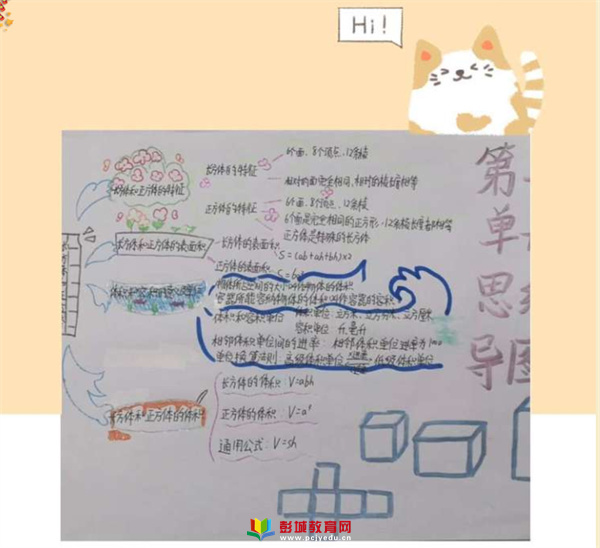 Hi!
第一
单元
思维
导图
长方体和正方体的特征
长方体的特征
6个面、8个顶点、12条棱
相对的面完全相同,相对的棱长度相等
正方体的特征
6个面、8个顶点、12条棱
6个面是完全相同的正方形,12条棱长度都相等
正方体是特殊的长方体
长方体和正方体的表面积
长方体的表面积
S=(ab+ah+bh)×2
正方体的表面积
物体所占空间的大小叫作物体的体积
容器所能容纳物体的体积叫作容器的容积
体积和容积单位
体积单位:立方米、立方分米、立方厘米
容积单位:升、毫升
相邻体积单位间的进率:相邻体积单位进率为1000
单位换算法则:高级体积单位 低级体积单位
长方体和正方体的体积
长方体的体积:V=abh
正方体的体积:V=a³
通用公式:V=sh
彭城教育网
www.pcjyedu.cn